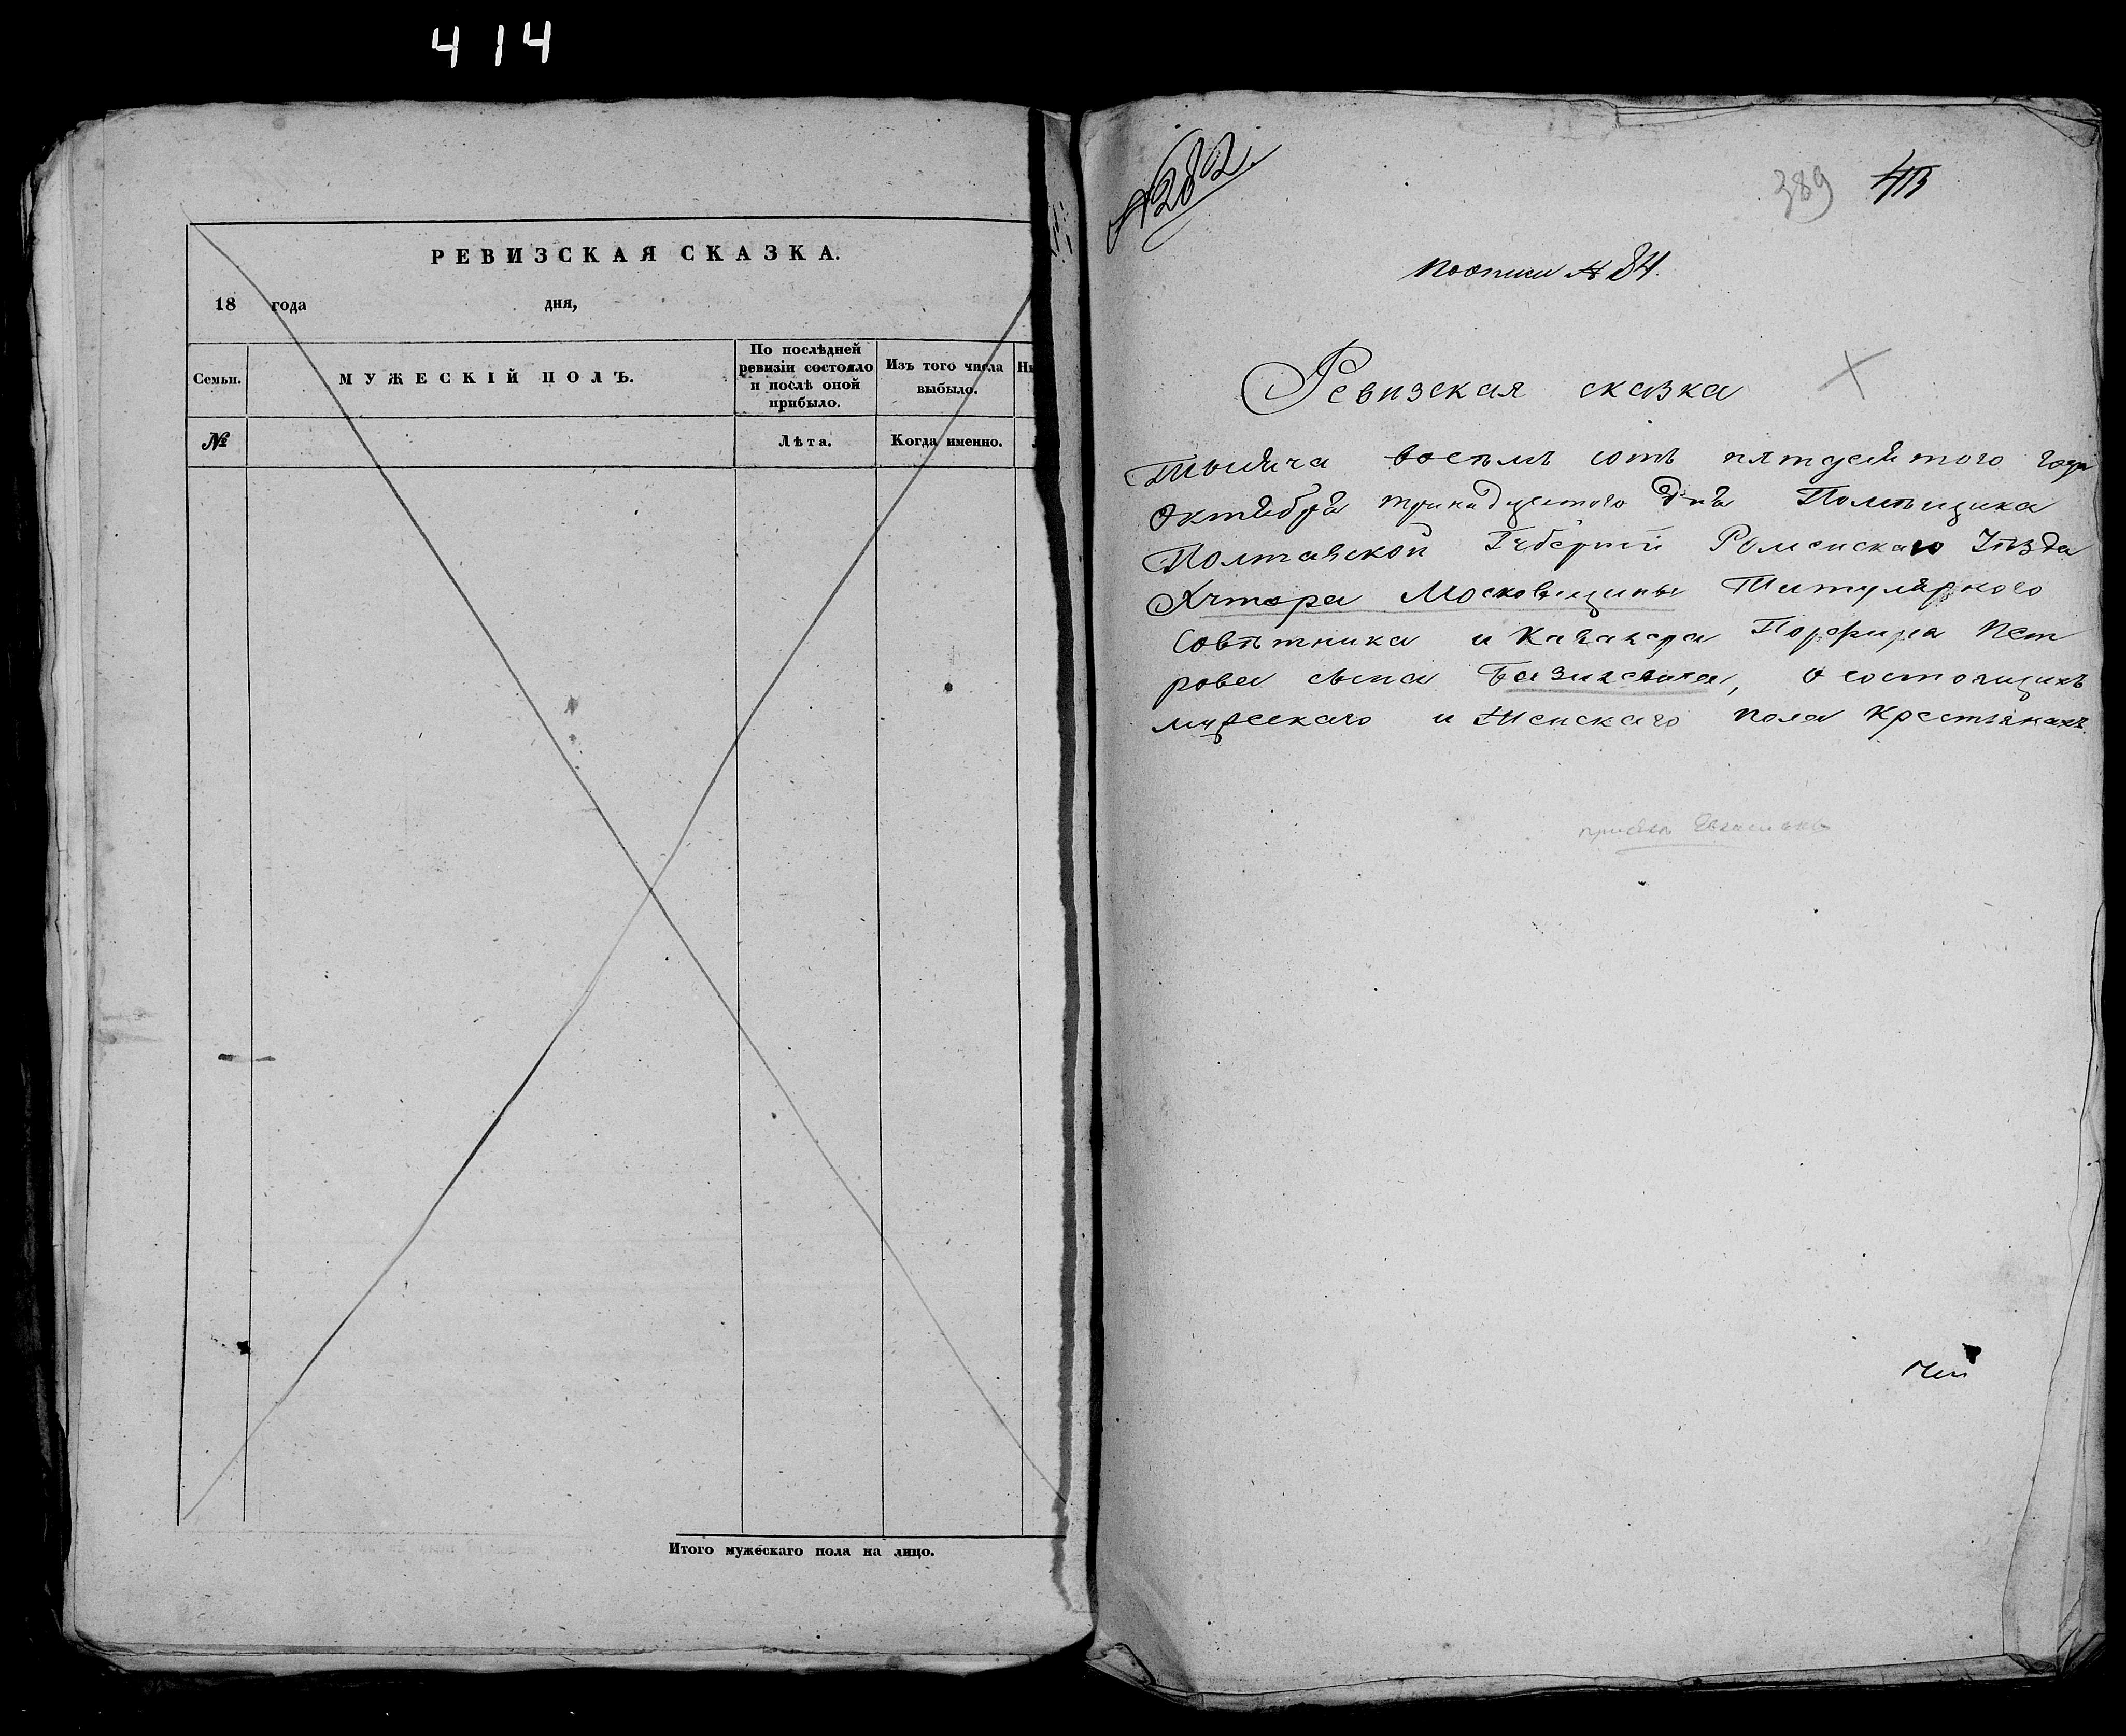 414
РЕВИЗСКАЯ СКАЗКА.
18 года дня,
Семьи.
МУЖЕСКІЙ ПОЛЪ.
По послѣдней
ревизіи состояло
и послѣ оной
прибыло.
Изъ того числа
выбыло.
№
Лѣта.
Когда именно.
Итого мужескаго пола на лицо.
№ 282.
389
по описи № 84.
Ревизская сказка
Тысяча восемь сотъ пятдесятого года
Октября тринадцатого дня Помѣщика
Полтавской Губерніи Роменскаго Уѣзда
Хутора Московщины Титулярного
Совѣтника и Кавалера Порфирія Пет
рова сына Базилевича, о состоящихъ
мужескаго и Женскаго пола Крестьянахъ.